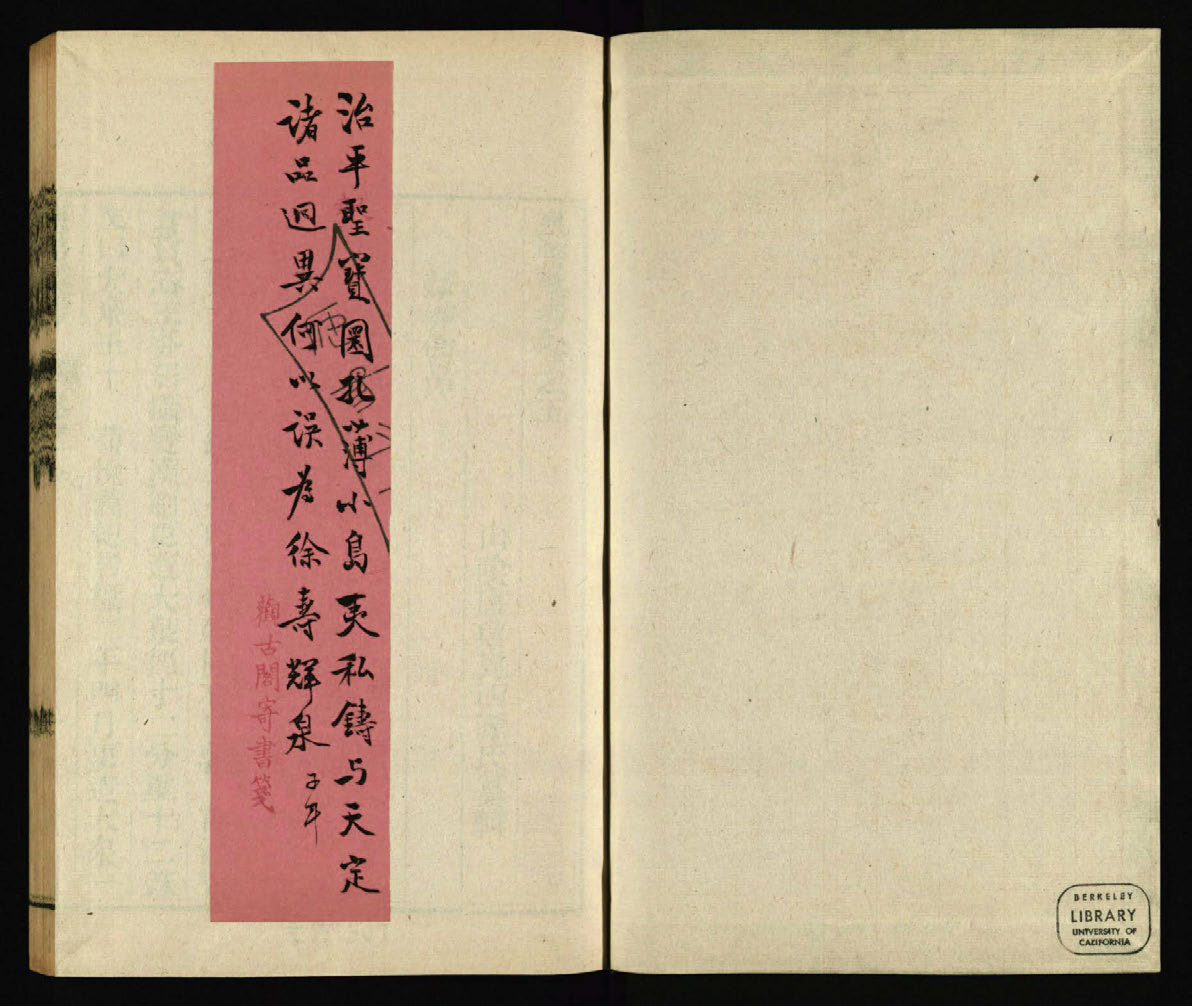 治平聖寶圜孔薄小島夷私鑄与天定
諸品迥異何以误为徐壽輝泉 子年
觀古閣寄書箋
BERKELEY
LIBRARY
UNIVERSITY OF
CALIFORNIA